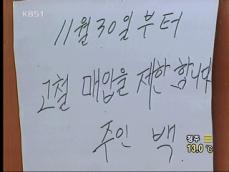 KBS1
11월 30일 부터
고철 매입을 제한 합니다
주인 백
광주
13.0℃